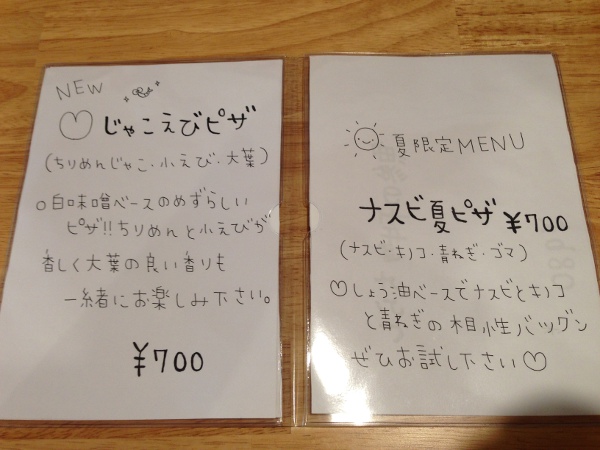 NEW
♡じゃこえびピザ
(ちりめんじゃこ・小えび・大葉)
○白味噌ベースのめずらしい
ピザ!!ちりめんと小えびが
香しく大葉の良い香りも
一緒にお楽しみ下さい。
¥700
夏限定MENU
ナスビ夏ピザ ¥700
(ナスビ・キノコ・青ねぎ・ゴマ)
♡しょう油ベースでナスビとキノコ
と青ねぎの相性バツグン
ぜひお試し下さい♡